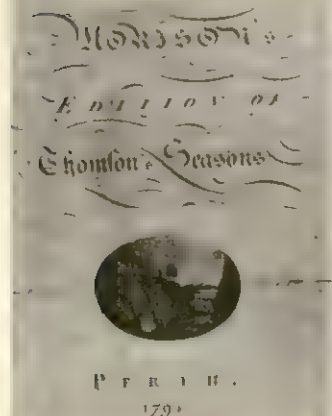 MORISON's
EDITION OF
Thomson's Seasons
PERTH.